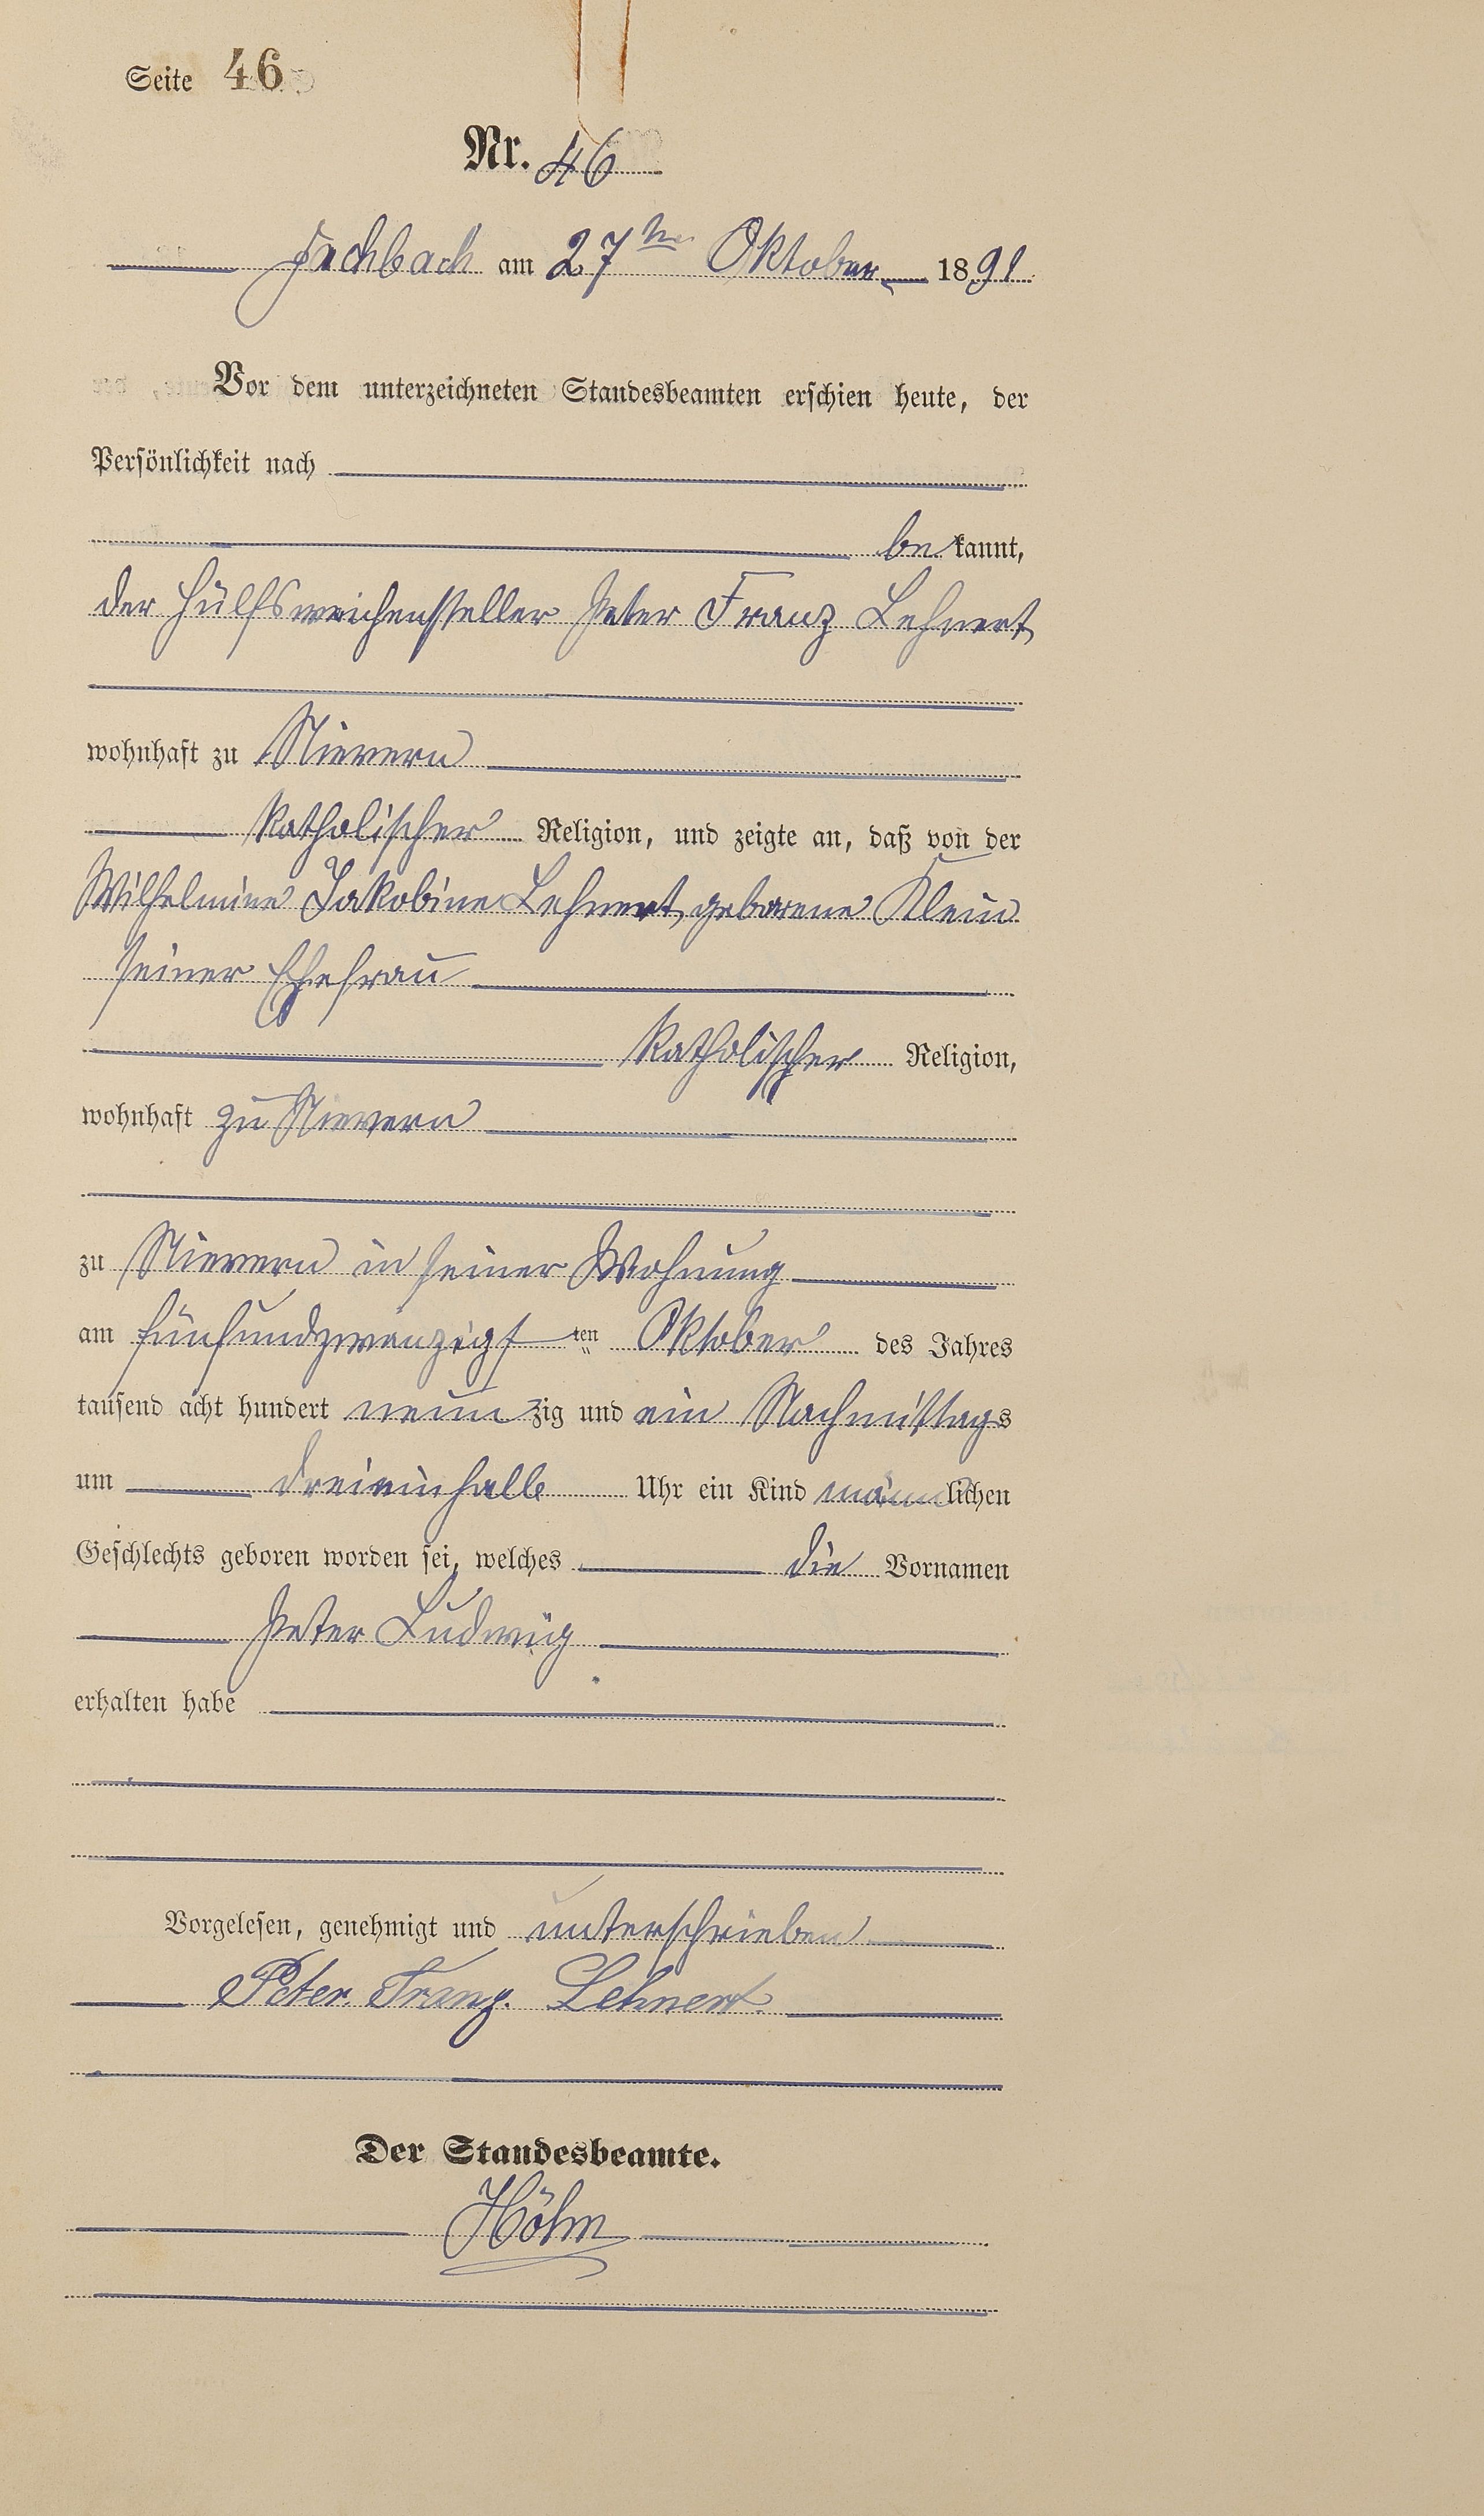 Seite 46
Nr. 46
Fachbach am 27ten Oktober 1891
Vor dem unterzeichneten Standesbeamten erschien heute, der
Persönlichkeit nach
be kannt,
der Hülfsweichensteller Peter Franz Lehnert
wohnhaft zu Nievern
katholischer Religion, und zeigte an, daß von der
Wilhelmine Jakobine Lehnert, geborene Klein
seiner Ehefrau
katholischer Religion,
wohnhaft zu Nievern
zu Nievern in seiner Wohnung
am fünfundzwanzigsten Oktober des Jahres
tausend acht hundert neunzig und ein Nachmittags
um dreieinhalb Uhr ein Kind männlichen
Geschlechts geboren worden sei, welches die Vornamen
Peter Ludwig
erhalten habe
Vorgelesen, genehmigt und unterschrieben
Peter Franz. Lehnert.
Der Standesbeamte.
Höhn